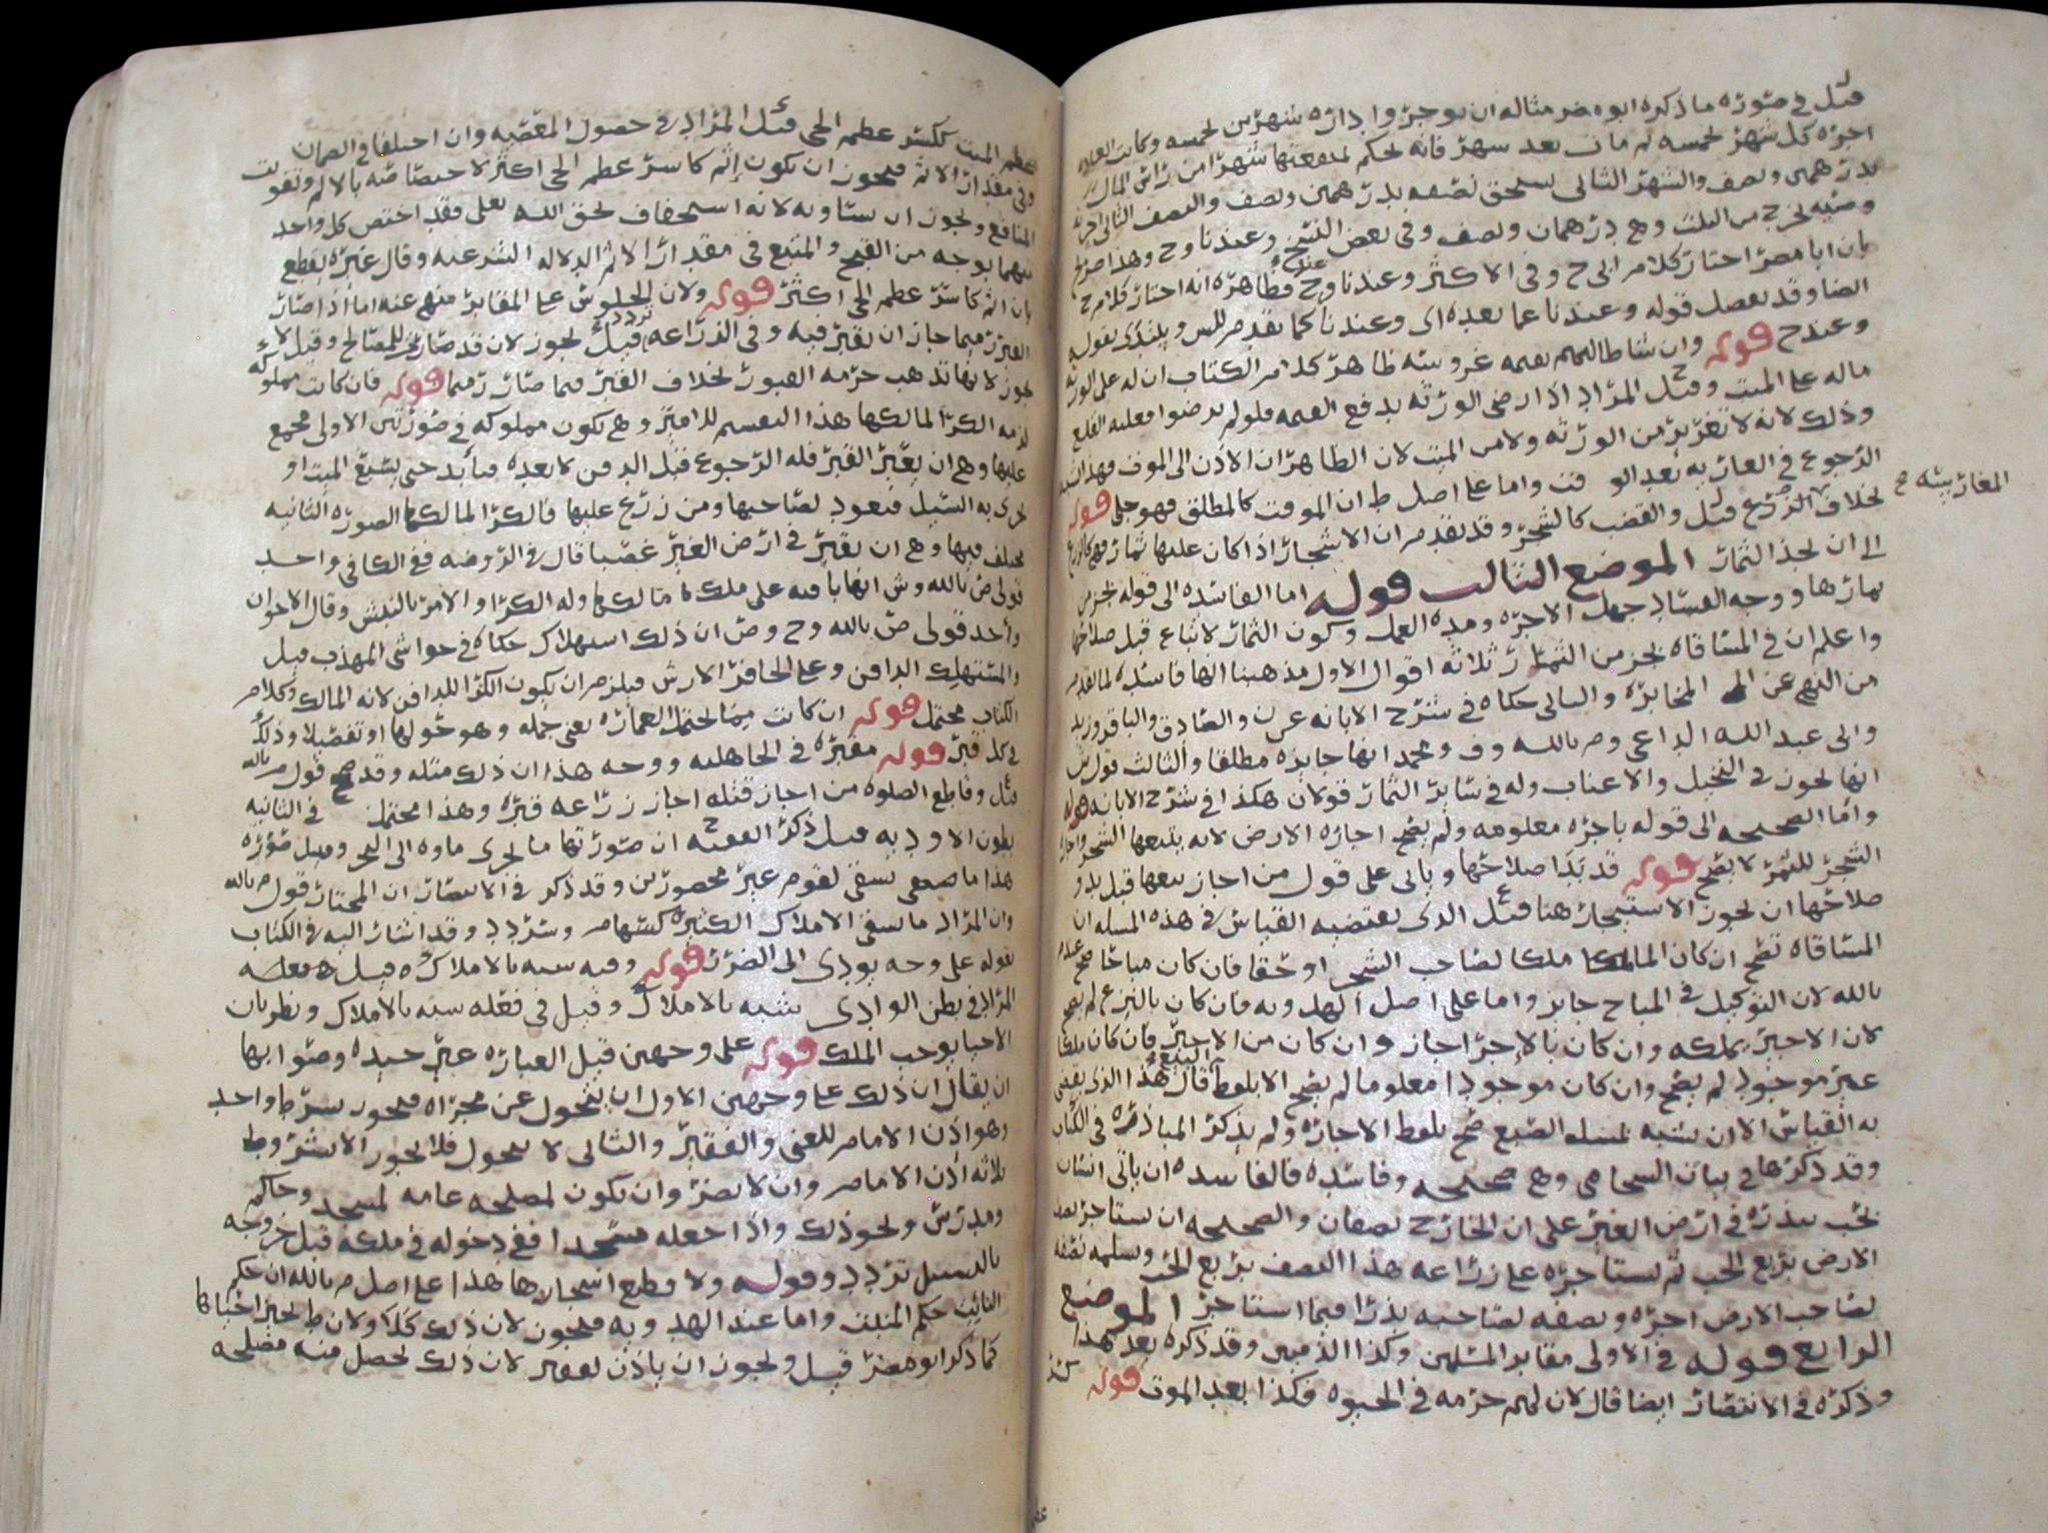 قيل في صورة ما ذكره ابو مضر مثاله ان يوجر واداره شهرين لخمسه وكانت العاده
اجره كل شهر لخمسه ثم مات بعد شهر فانه لحكم لمنفعتها شهرا من راس المال
بدرهمين ونصف والشهر الثاني يستحق نصفه بدرهمين ونصف والنصف الثاني
وصيه لخرج من الثلث وهي درهمان ونصف وفي بعض النسخ وعندنا وح وهذا صريح
بان ابا مضر اختار كلام ابي ح وفي الاكثر وعندنا وح فظاهره انه اختار كلام ح
ايضا وقد يفصل قوله وعندنا عما بعده اي وعندنا كما تقدم وليس ويبتدى بقوله
وعند ح قوله وان شاطالبهم بقيمه غروسه ظاهر كلام الكتاب ان له على الورثه
ماله على الميت وقيل المراد اذا رضي الورثه بدفع القيمه فلو لم يرضوا فعليه القلع
وذلك لانه لا تغرير من الورثه ولا من الميت لان الظاهر ان الاذن الى الموت فهذا
الرجوع في العاريه بعد الوقت واما على اصل ط ان الموقت كالمطلق فهو جلي قوله
لخلاف الزرع قيل والقضب كالشجر وقد تقدم ان الاشجار اذا كان عليها ثمار فهي كالزرع
الى ان لجذ الثمار الموضع الثالث قوله اما الفاسده الى قوله لجز من
ثمارها ووجه الفساد جهل الاجره ومده العمل وكون الثمار لا تباع قبل صلاحها
واعلم ان في المساقاه لجز من الثمار ثلاثه اقوال الاول مذهبنا انها فاسده لما تقدم
من النهي عن المخابره والثاني حكاه في شرح الابانه عن ن والصادق والباقر وزيد
وابي عبد الله الداعي وم بالله وف ومحمد انها جايزه مطلقا والثالث قول ش
انها لجوز في النخيل والاعناب وله في ساير الثمار قولان هكذا في شرح الابانه قوله
واما الصحيحه الى قوله باجره معلومه ولم يصح اجاره الارض لانه يتبعها الشجر واجاره
الشجر للثمر لا يصح قوله قد بدا صلاحها وياتي على قول من اجاز بيعها قبل بدو
صلاحها ان لجوز الاستيجار هنا قيل الذي يقتضيه القياس في هذه المسله ان
المساقاه تصح ان كان الما ملكا لصاحب الشجر او حقا فان كان مباحا صح عند م
بالله لان التوكيل في المباح جايز واما على اصل الهدويه فان كان بالتبرع لم يصح
لان الاجير يملكه وان كان بالاجرا جاز وان كان من الاجير فان كان ملكا
غير موجود لم يصح وان كان موجودا معلوما لم يصح الا بلفظ البيع قال هذا الذي يقضي
به القياس الا ان يشبه لمسله الصبغ صح بلفظ الاجاره ولم يذكر المباذره في الكتاب
وقد ذكرها في بيان السحامي وهي صحيحه وفاسده فالفاسده ان ياتي انسان
لحب يبذره في ارض الغير على ان الخارج نصفان والصحيحه ان يستاجر نصف
الارض بربع الحب ثم يستاجره على زراعه هذا النصف بربع الحب ويسلمه نصفه
لصاحب الارض اجره ونصفه لصاحبه بذرا فيما استاجر الموضع
الرابع قوله في الاولى مقابر المسلمين وكذا الذميين وقد ذكره بعد هذا
وذكره في الانتصار ايضا قال لان لهم حرمه في الحيوه فكذا بعد الموت قوله كسر
المغارسه ح
عظم الميت ككسر عظمه الحي قيل المراد في حصول المعصيه وان اختلفا في الضمان
وفي مقدار الاثم فيجوز ان يكون اثم كاسر عظم الحي اكثر لاختصاصه بالالم وتفويت
المنافع ولجوز ان يستاويه لانه استخفاف لحق الله تعلى فقد اختص كل واحد
منهما بوجه من القبح والمتبع في مقدار الاثم الدلاله الشرعيه وقال غيره يقطع
بان اثم كاسر عظمه الحي اكثر قوله ولان الجلوس على المقابر منهي عنه اما اذا صار
القبر رميما جاز ان يقبر فيه وفي الزراعه تردد قيل لجوز لان قد صار للمصالح وقيل لا
لجوز لانها تذهب حرمه القبور لخلاف القبر فيما صار رميما قوله فان كانت مملوكه
لزمه الكرا لمالكها هذا التقسيم للامير وهي تكون مملوكه في صورتين الاولى مجمع
عليها وهي ان يعير القبر فله الرجوع قبل الدفن لا بعده فتابد حتى يشبع الميت او
لجرى به السيل فتعود لصاحبها ومن زرع عليها فالكرا لمالكها الصوره الثانيه
مختلف فيها وهي ان يقبر في ارض الغير غصبا قال في الروضه ففي الكافي واحد
قولي ص بالله وش انها باقيه على ملك مالكها وله الكرا والامر بالنبش وقال الاخوان
واحد قولي ص بالله وح وص ان ذلك استهلاك حكاه في حواشي المهذب قيل
والمستهلك الدافن وعلى الحافر الارش فيلزم ان يكون الكرا للدافن لانه المالك وكلام
الكتاب محتمل قوله ان كانت مما لحتمل العماره يعني جمله وهو حولها او تفصيلا وذلك
في كل قبر قوله مقبره في الجاهليه ووجه هذا ان ذلك مثله وقد صح قول م بالله
قيل وقاطع الصلوه من اجاز قتله اجاز زراعه قبره وهذا محتمل في الثانيه
بطون الاوديه قيل ذكر الفقيه ح ان صورتها ما لجري ماوه الى البحر وقيل صوره
هذا ما صبي يسقي لقوم غير محصورين وقد ذكر في الانتصار ان المختار قول م بالله
وان المراد ما يسقي الاملاك الكثيره كسهام وسردد وقد اشار اليه في الكتاب
بقوله على وجه يودي الى الضرر قوله وفيه شبه بالاملاك قيل
المراد في بطن الوادي شبه بالاملاك وقيل في فعله شبه بالاملاك ونظر بان
الاحيا يوجب الملك قوله على وجهين قيل العباره غير جيده وصوابها
ان يقال ان ذلك على وجهين الاول ان يتحول عن مجراه فيجوز بشرط واحد
وهو اذن الامام للغني والفقير والثاني لا يتحول فلا لجوز الا بشروط
ثلاثه اذن الامام وان لا يضر وان يكون لمصلحه عامه لمسجد وحاكم
ومدرس ولحو ذلك واذا جعله مسجدا ففي دخوله في ملكه قبل خروجه
بالتسبيل تردد وقوله ولا قطع اشجارها هذا على اصل م بالله ان حكم
النابت حكم المنبت واما عند الهدويه فيجوز لان ذلك كلا ولان ط لجيز احياها
كما ذكر ابو مضر قيل ولجوز ان ياذن لفقير لان ذلك لحصل منه مصلحه